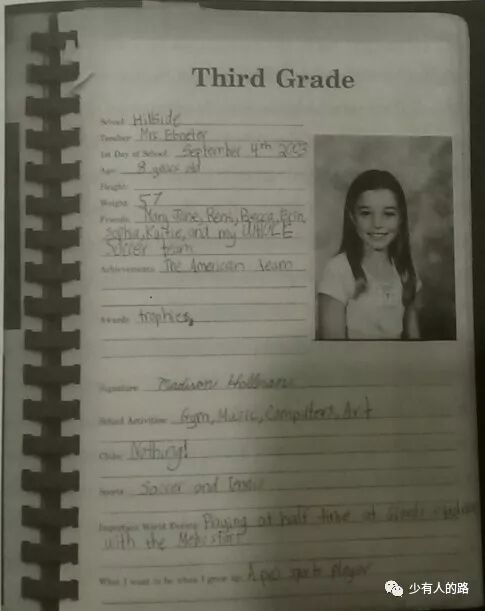 Third Grade
School: Hillside
Teacher: Mrs.
1st Day of School: September 4th 2003
Age: 8 years old
Height:
Weight: 57
Friends: Mary Jane, Remi, Becca, Erin,
Sophia, Katie, and my WHOLE
Soccer team
Achievements: The American team
Awards: trophies,
Signature: Madison Holleran
School Activities: Gym, Music, Computers, Art
Clubs: Nothing!
Sports: Soccer and Tennis
Important World Events: Playing at half time at Giants
with the
What I want to be when I grow up: A pro sports player
少有人的路